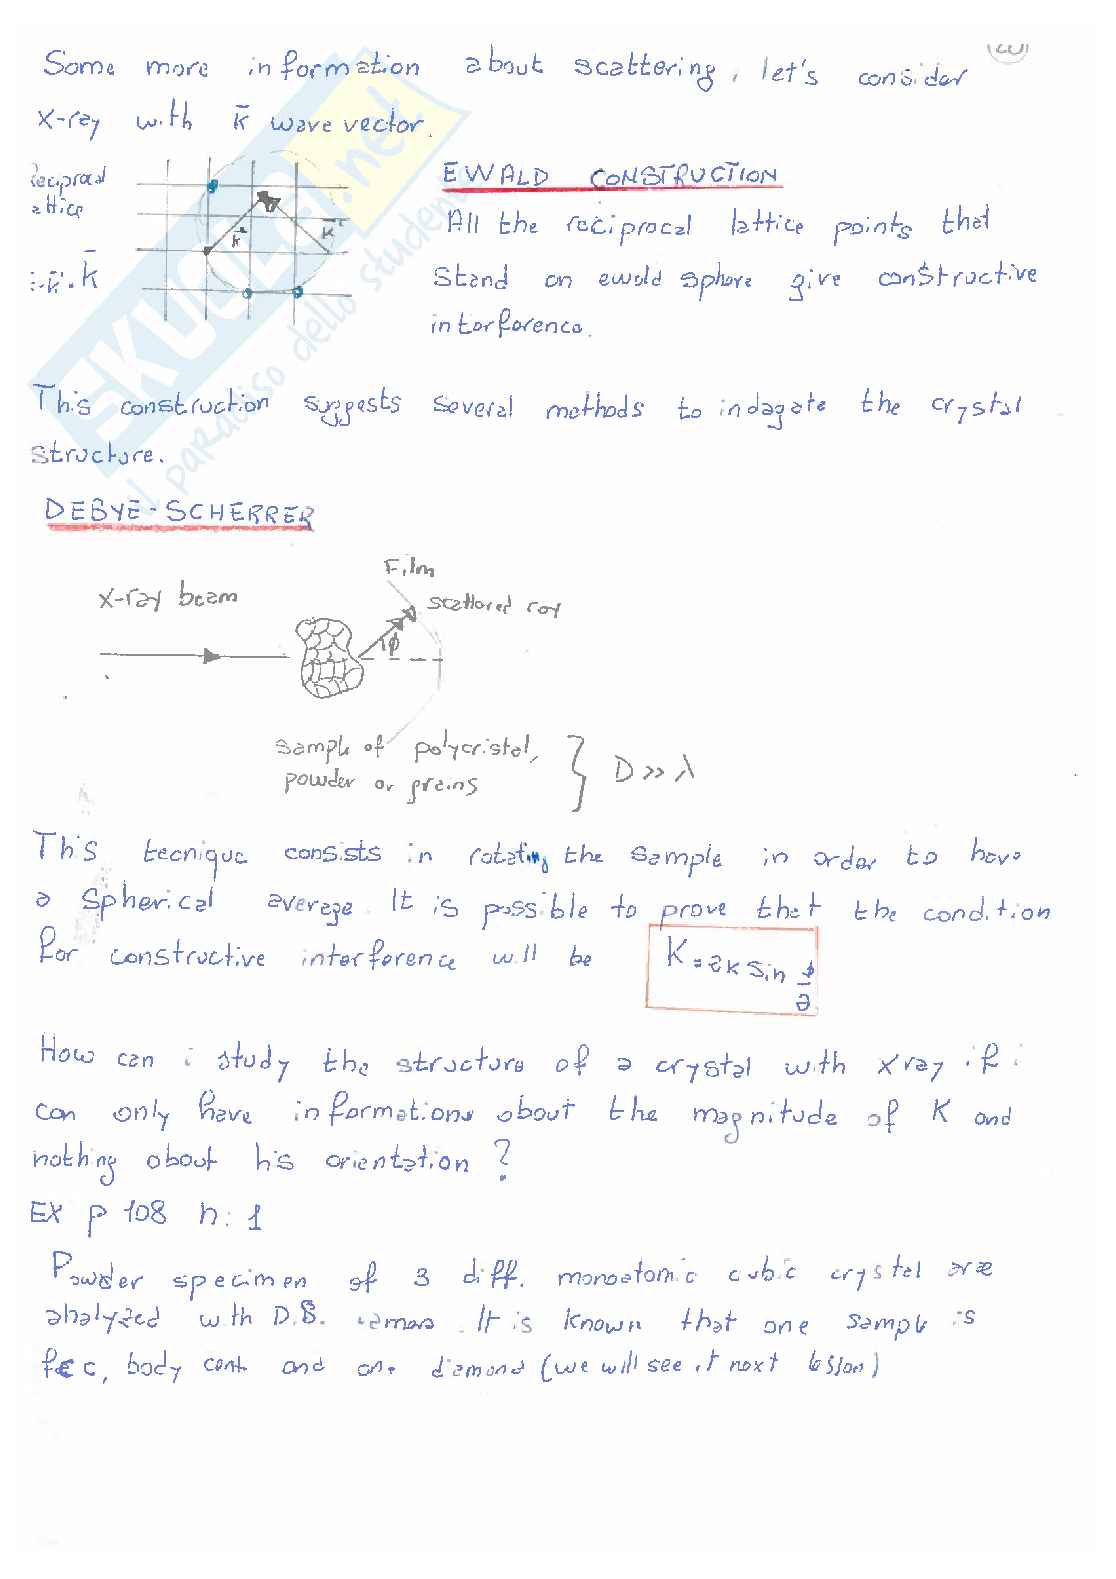 (20)
Some more information about scattering, let's consider
x-ray with k̄ wave vector.
reciprocal
lattice
EWALD CONSTRUCTION
k̄
k̄'
All the reciprocal lattice points that
k̄'- k̄
stand on ewald sphere give constructive
interference.
This construction suggests several methods to indagate the crystal
structure.
DEBYE-SCHERRER
Film
x-ray beam
scattered ray
ϕ
sample of polycristal,
powder or grains
D >> λ
This tecnique consists in rotating the sample in order to have
a spherical average. It is possible to prove that the condition
for constructive interference will be K = 2k sin ϕ/2
How can i study the structure of a crystal with x ray if i
can only have informations about the magnitude of K and
nothing about his orientation ?
EX p 108 n: 1
Powder specimen of 3 diff. monoatomic cubic crystal are
analyzed with D.S. camera. It is known that one sample is
fcc, body cent and one diamond (we will see it next lesson)
SKUOLA.net
il paradiso dello studente